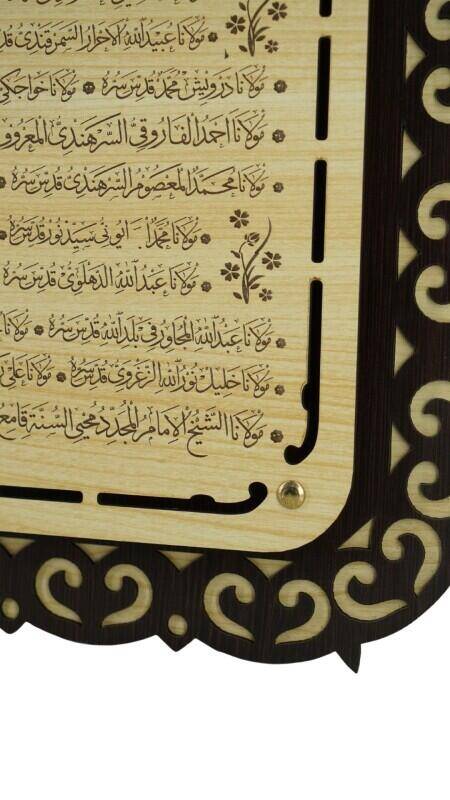 مولانا عبيد الله الاحرار السمرقندي
مولانا درويش محمد قدس سره ❁ مولانا خواجكي
مولانا احمد الفاروقي السرهندي المعروف
مولانا محمد المعصوم السرهندي قدس سره
مولانا محمد سيد نور قدس سره
مولانا عبد الله الدهلوي قدس سره
مولانا عبد الله المجاور في بلد الله قدس سره
مولانا خليل نور الله الزغروي قدس سره ❁ مولانا علي
مولانا الشيخ الامام المجدد محيي السنة قامع